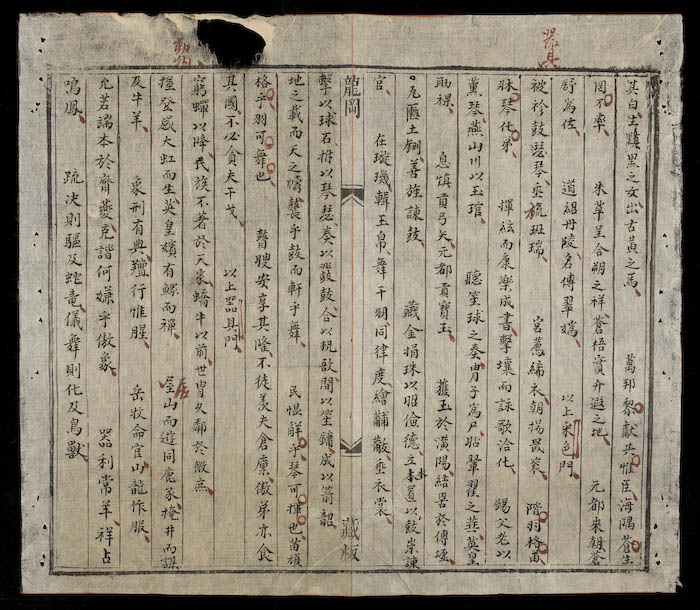 器具
其白生黥黑之文出古黃之馬 萬邦黎獻共惟臣海隅蒼生
罔不率 朱草呈合朔之祥蒼梧實升遐之地 元都來朝蒼
舒為佐 道紹丹陵名傳翠媯 以上采色門
被袗鼓瑟琴垂旒班瑞 宮薦絺衣朝揚 階羽格苗
牀琴化弟 揮絃而康樂成書擊壤而詠歌洽化 錫父老以
薰琴燕山川以玉琯 聽笙球之奏胄子 翬翟之 英皇
助祼 息慎貢弓矢元都貢寶玉 獲玉於 陽結罟於傅墟
瓦匭土鉶善旌諫鼓 藏金捐珠以昭儉德立木置鼓以崇諫
官 在璇璣輯玉帛舞干羽同律度繪黼黻垂衣裳
龍岡 藏板
擊以球石拊以琴瑟奏以鼗鼓合以柷敔間以笙鏞成以簫韶
地之載而天之幬 乎鼓而軒乎舞 民慍解乎琴可揮也苗頑
格乎羽可舞也 瞽瞍安享其隆不徒羨夫倉廩傲弟亦食
其國不必貪夫干戈 以上器具門
動物
窮蟬以降民族不著於天家蟜牛以前世胄久鄰於微庶
握登感大虹而生英皇嬪有鰥而禪 居山而遊同鹿豕掩井而謀
及牛羊 象刑有典羶行惟腥 岳牧命官山龍作服
允若端本於齊夔克諧何嫌乎傲象 器利常羊祥占
鳴鳳 疏決則驅及蛇竜儀舞則化及鳥獸